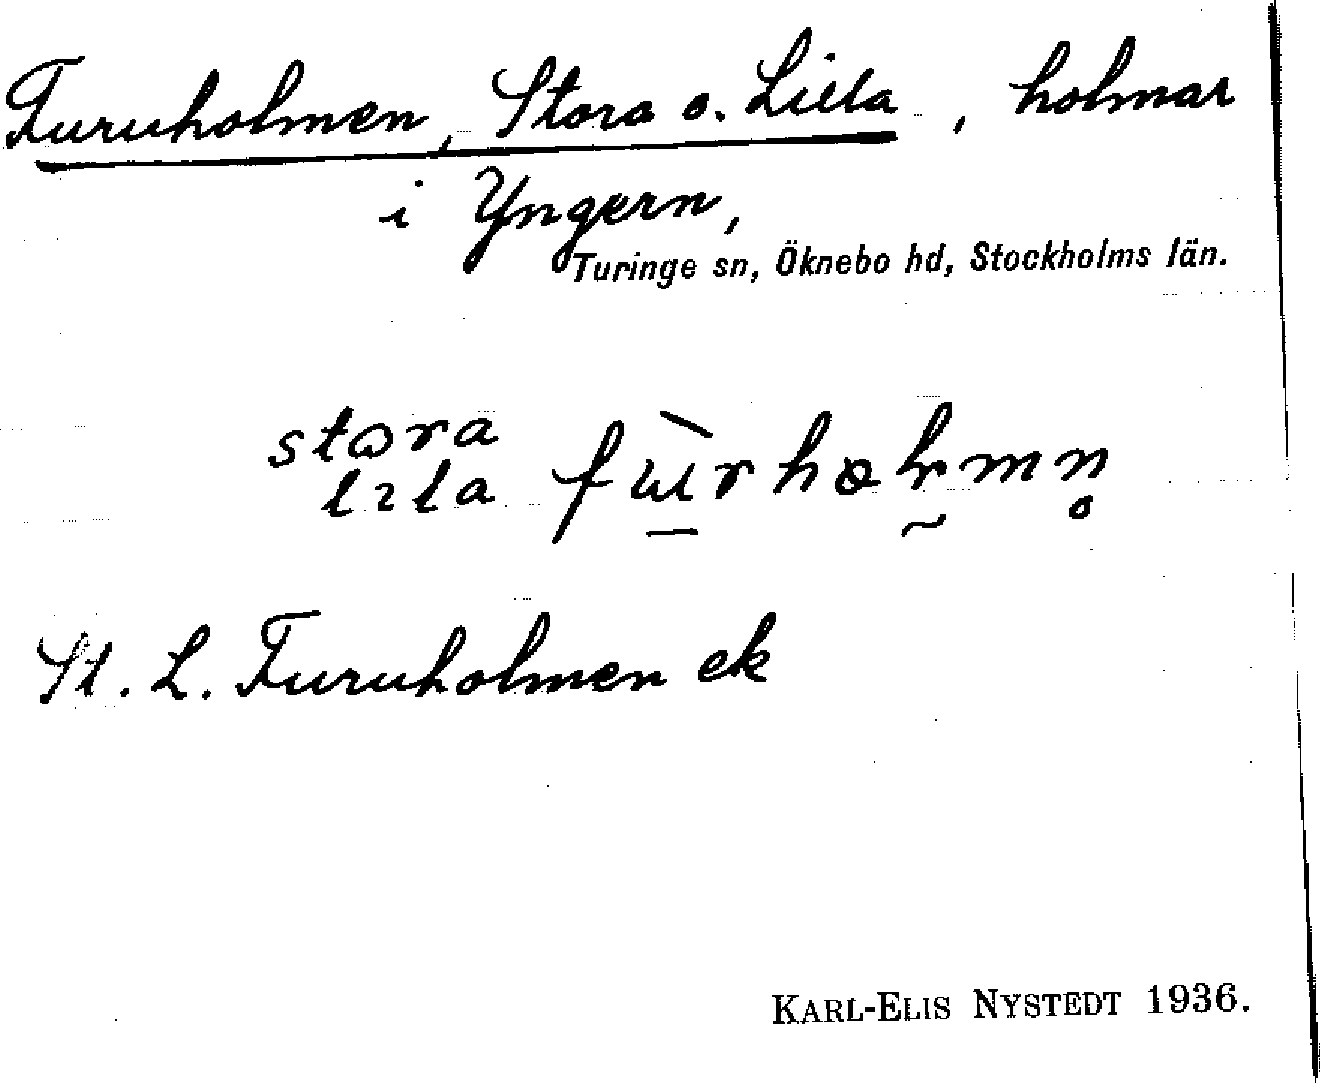 Furuholmen, Stora o. Lilla, holmar
i Yngern,
Turinge sn, Öknebo hd, Stockholms län.
stora
lila
St. L. Furuholmen ek
KARL-ELIS NYSTEDT 1936.